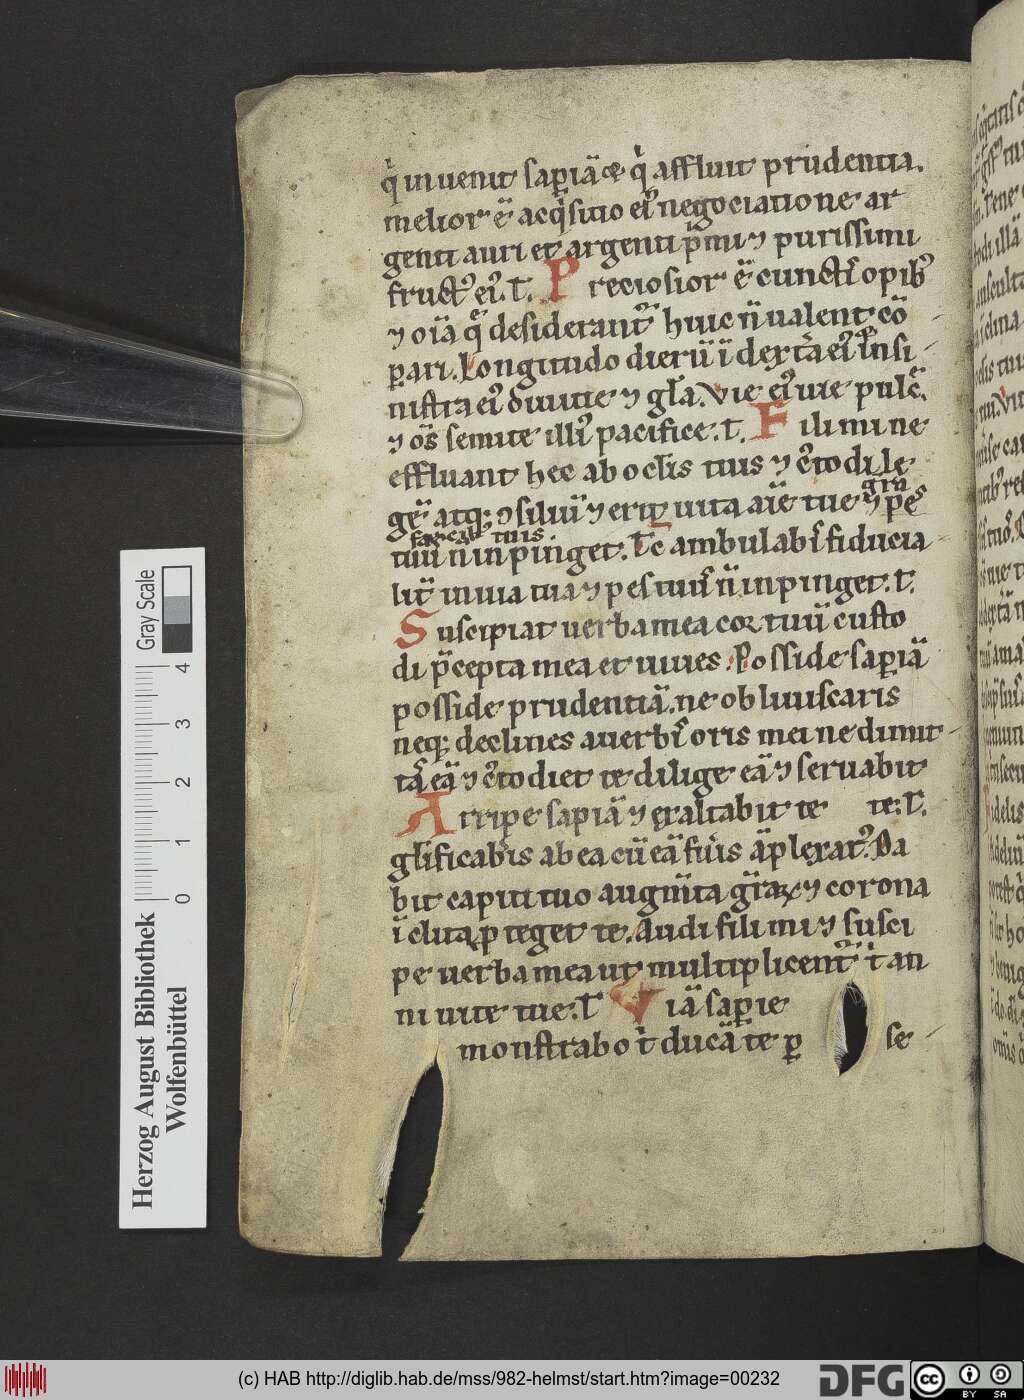 q̇ inuenit sapiā ⁊ q̇ affluit prudentia.
melior ē acq̇sitio ei᾽ negociatione ar
genti auri et argenti p̄mi ⁊ purissimi
fruct᾽ ei᾽. T. Preciosior ē cunctis opib᾽
⁊ oīa q̄ desiderant᾽ huic n̄ ualent cō
pari. Longitudo dierū ī dextᵃ ei᾽ ⁊ ī si
nistra ei᾽ diuitie ⁊ gl̄a. Vie ei᾽ uie pulc̄.
⁊ om̄s semite illi᾽ pacifice. T. Fili mi ne
effluant hec ab oclis tuis ⁊ c᾽todi le
gē atq; ⁊siliū ⁊ erit uita aīe tue ⁊ pes
grā
faucib᾽ tuis.
tuū n̄ inpinget. Tc̄ ambulabis fiducia
lit᾽ in uia tua ⁊ pes tuus n̄ inpinget. T.
Suscipiat uerba mea cor tuū custo
di p̄cepta mea et uiues. Posside sapiā
posside prudentiā. ne obliuiscaris
neq; declines a uerbis oris mei ne dimit
tas eā ⁊ c᾽todiet te dilige eā ⁊ seruabit
Arripe sapiā ⁊ exaltabit te te. T.
glificab̄is ab ea cū eā fuīs āplexat᾽. Da
bit capiti tuo augm̄ta grāꝝ ⁊ corona
īclita p̱teget te. Audi fili mi ⁊ susci
pe uerba mea ut multiplicent᾽ t an
ni uite tue. T. Viā sapie
monstrabo t ducā te p̱ se
Herzog August Bibliothek
Wolfenbüttel
0 1 2 3 4
Gray Scale
(c) HAB http://diglib.hab.de/mss/982-helmst/start.htm?image=00232
DFG
cc BY SA